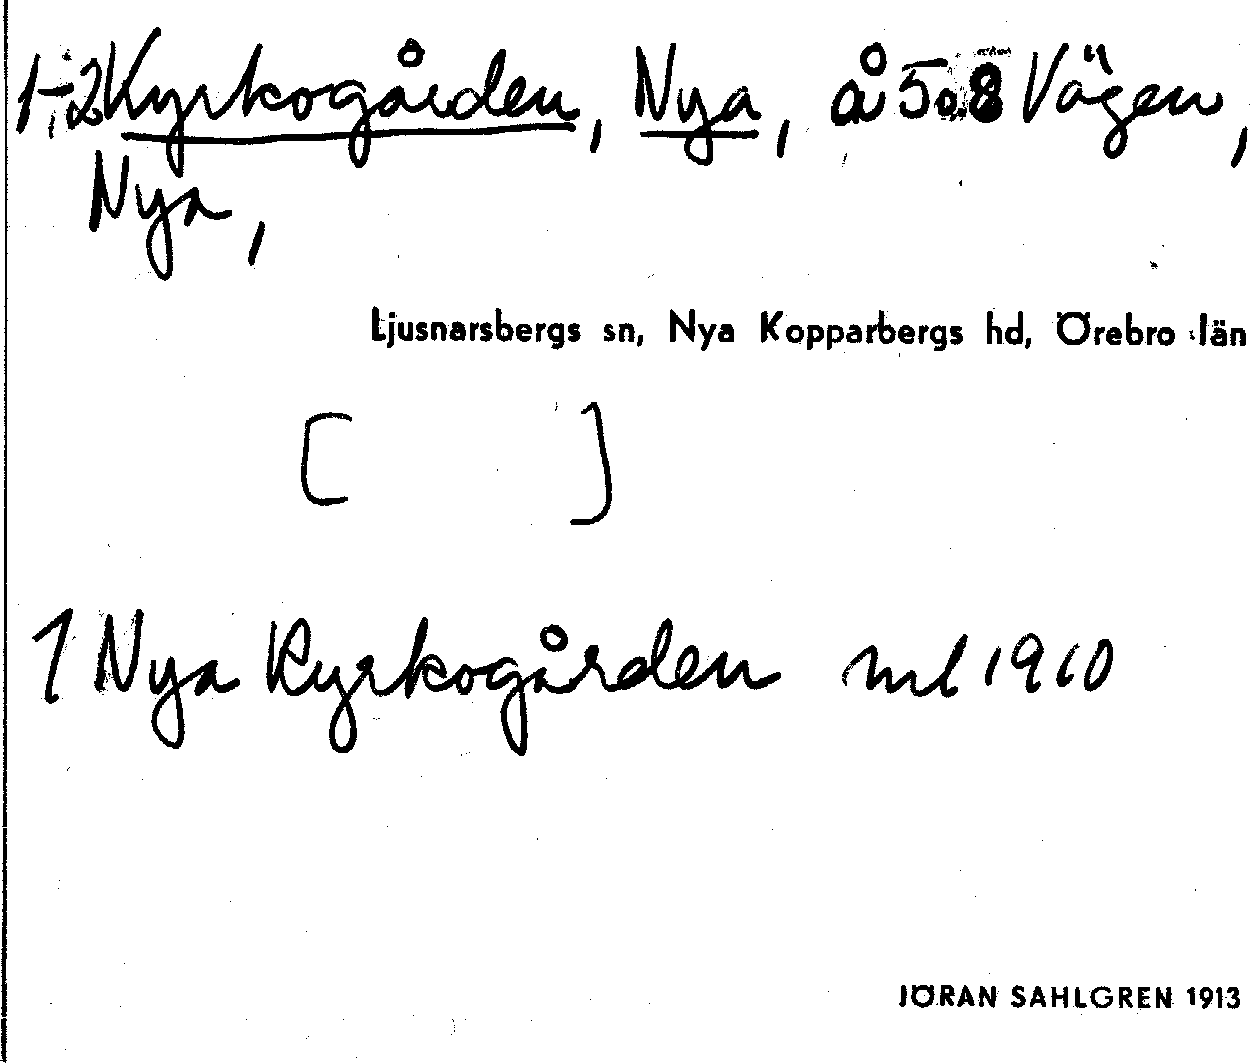 1-2 Kyrkogården, Nya, å 5 o. 8 Vägen,
Nya,
Ljusnarsbergs sn, Nya Kopparbergs hd, Örebro län
[ ]
1 Nya Kyrkogården ml 1910
JÖRAN SAHLGREN 1913